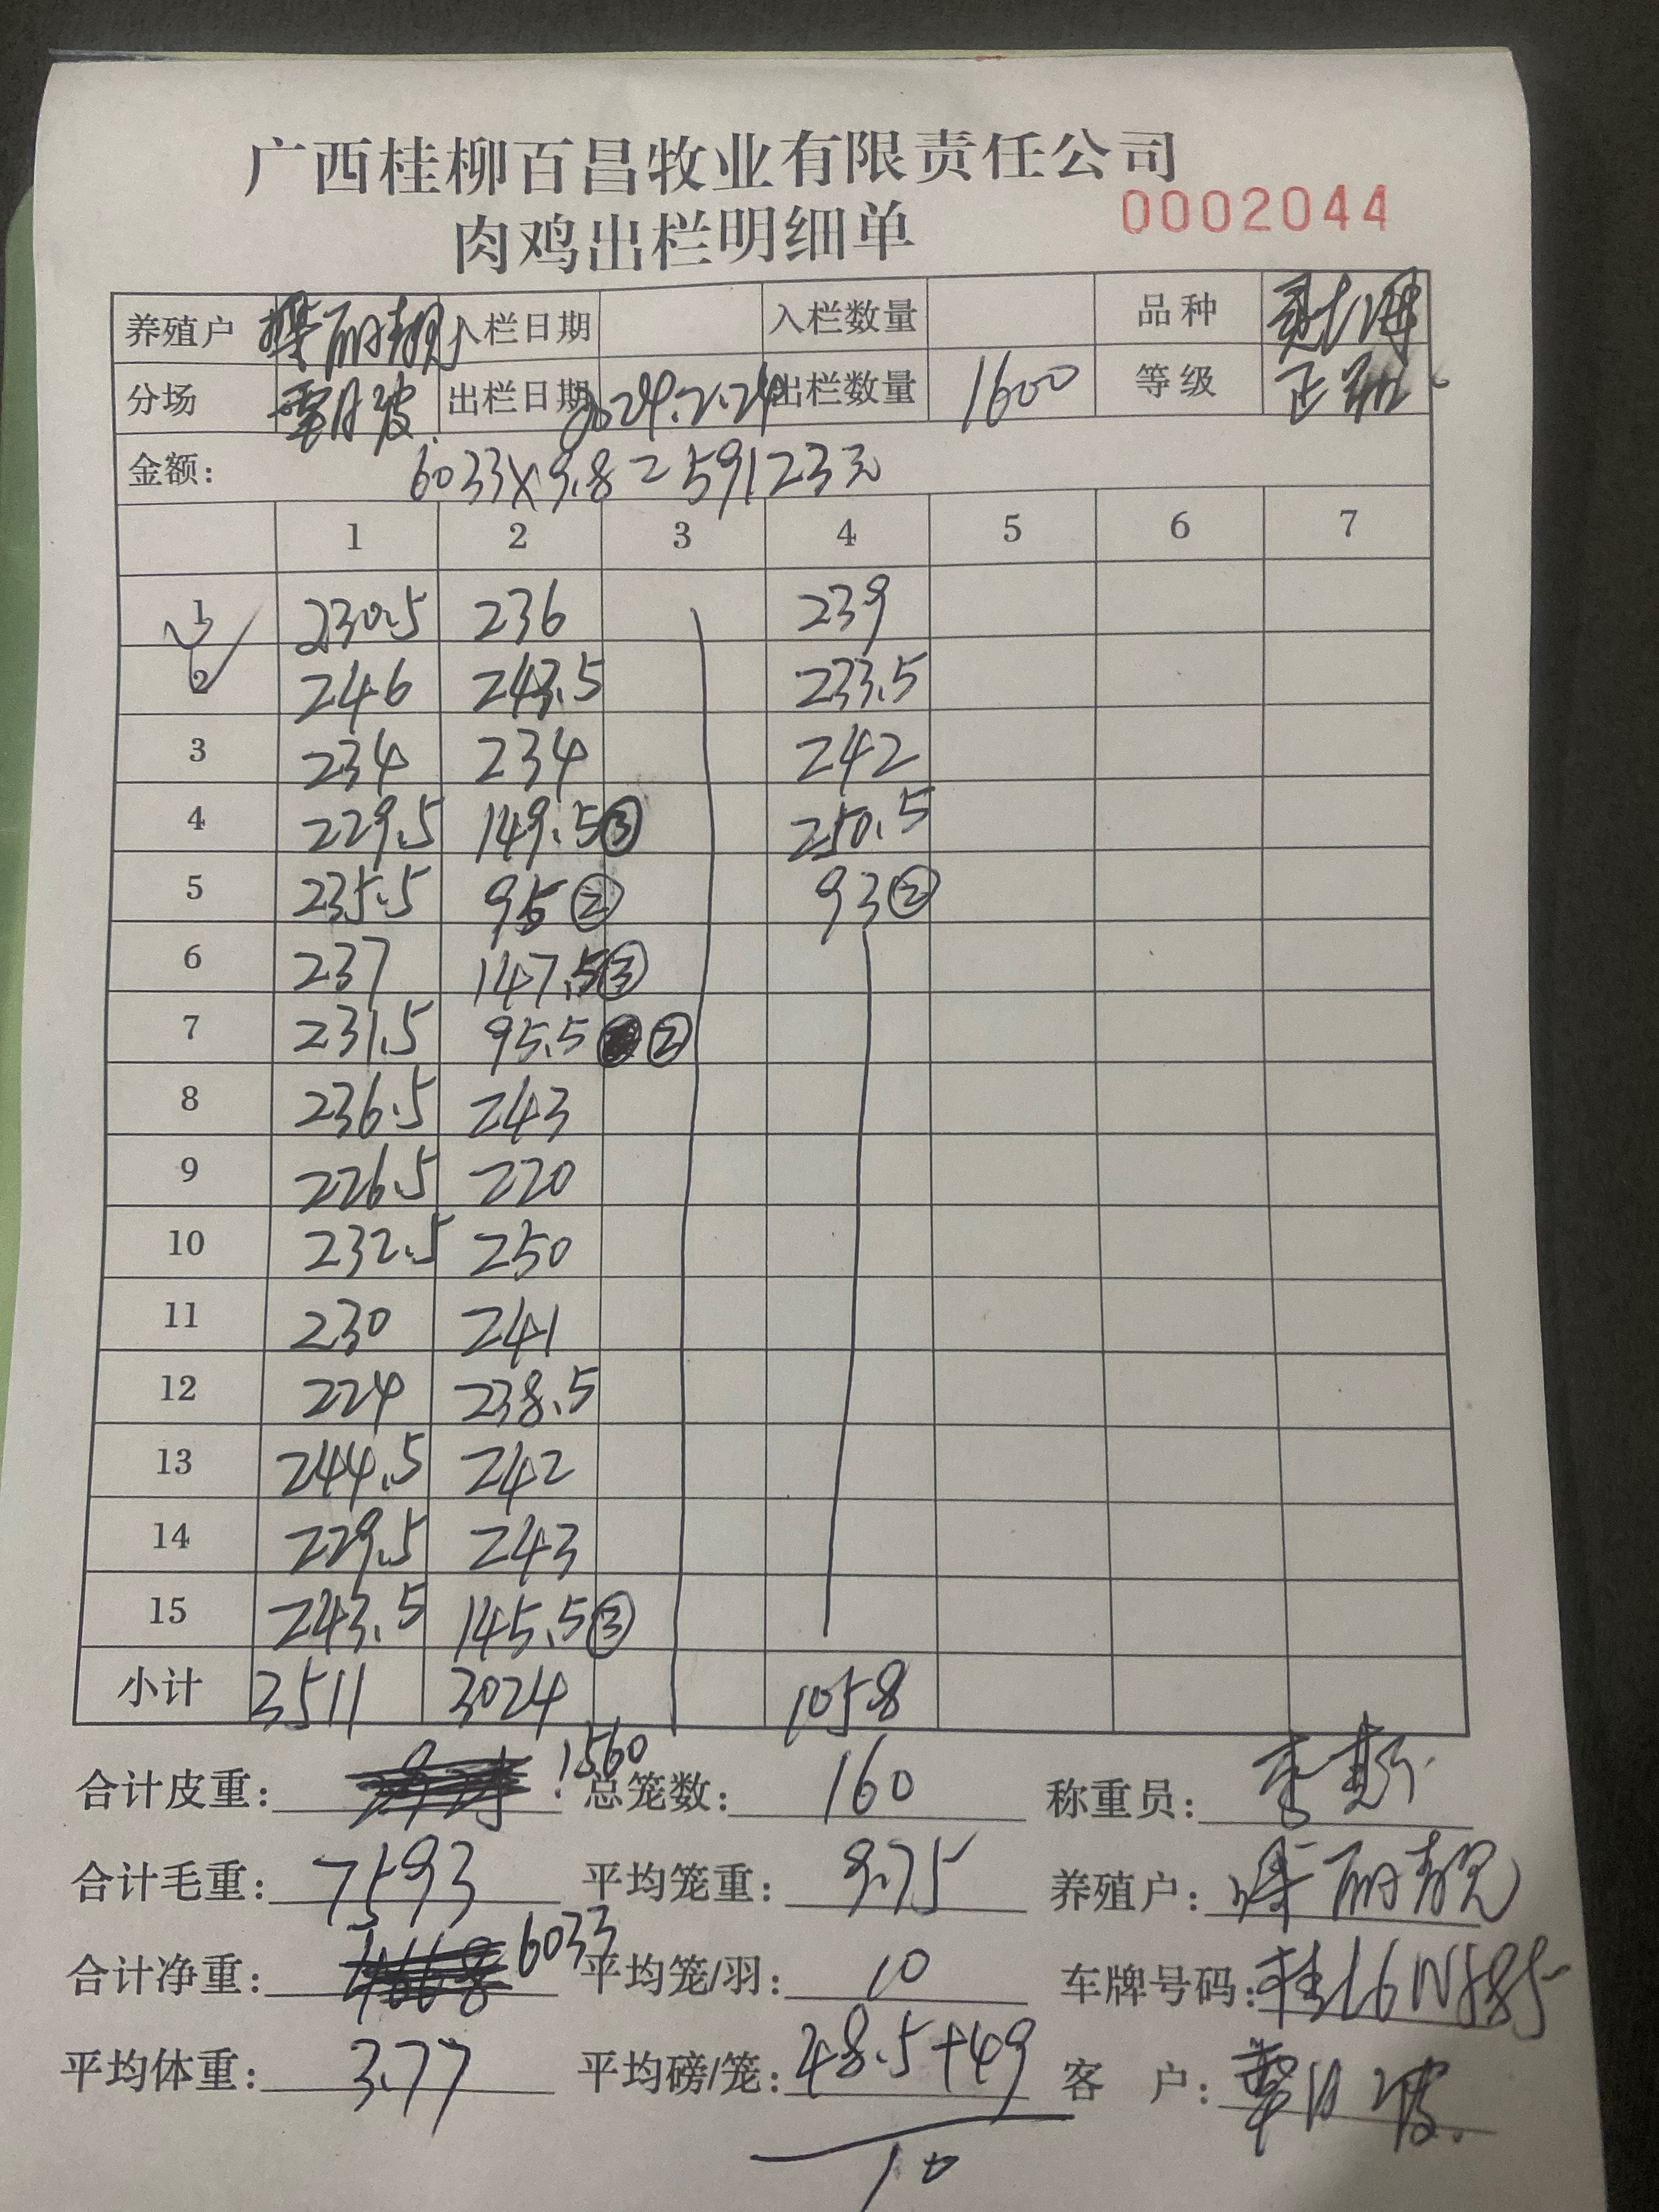 广西桂柳百昌牧业有限责任公司
肉鸡出栏明细单 0002044
养殖户 入栏日期 入栏数量 品种
分场 覃月波 出栏日期 2024.2.24 出栏数量 1600 等级 正
金额: 6033×9.8=59123元
1 2 3 4 5 6 7
1 230.5 236 239
2 246 243.5 233.5
3 234 234 242
4 229.5 149.5③ 250.5
5 235.5 95② 93②
6 237 147.5③
7 231.5 95.5 ②
8 236.5 243
9 226.5 220
10 232.5 250
11 230 241
12 224 238.5
13 244.5 242
14 229.5 243
15 243.5 145.5③
小计 3511 3024 1058
合计皮重: 1560 总笼数: 160 称重员: 李斯
合计毛重: 7593 平均笼重: 9.75 养殖户:
合计净重: 6033 平均笼/羽: 10 车牌号码:
平均体重: 3.77 平均磅/笼: 48.5+49 客 户: 覃月波
10